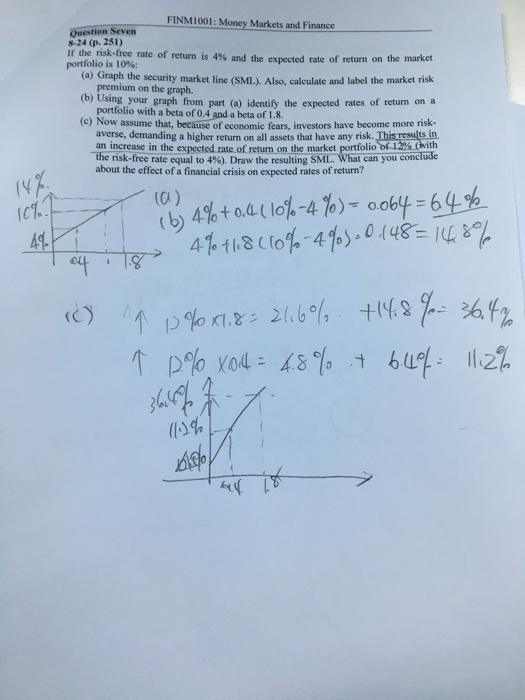 FINM1001: Money Markets and Finance
Question Seven
8-24 (p. 251)
If the risk-free rate of return is 4% and the expected rate of return on the market
portfolio is 10%:
(a) Graph the security market line (SML). Also, calculate and label the market risk
premium on the graph.
(b) Using your graph from part (a) identify the expected rates of return on a
portfolio with a beta of 0.4 and a beta of 1.8.
(c) Now assume that, because of economic fears, investors have become more risk-
averse, demanding a higher return on all assets that have any risk. This results in
an increase in the expected rate of return on the market portfolio of 12% (with
the risk-free rate equal to 4%). Draw the resulting SML. What can you conclude
about the effect of a financial crisis on expected rates of return?
14%
10%
4%
04 1 1.8
(a)
(b) 4%+0.4(10%-4%)= 0.064=6.4%
4%+1.8(10%-4%)=0.148=14.8%
(c) ↑ 12%×1.8= 21.6%. +14.8%= 36.4%
↑ 12% ×0.4= 4.8% + 6.4%= 11.2%
36.4%
11.2%
0.4 1.8